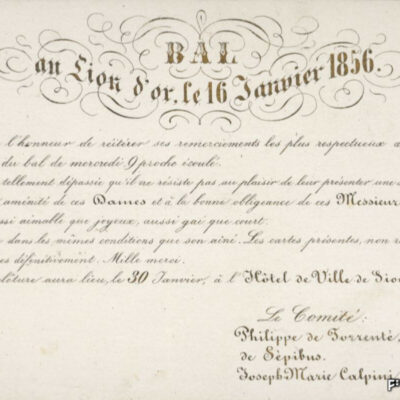 BAL
au Lion d'or, le 16 Janvier 1856.
l'honneur de réitérer ses remerciements les plus respectueux a
du bal de mercredi 9 proche écoulé.
tellement dépassée qu'il ne résiste pas au plaisir de leur présenter une
aménité de ces Dames et à la bonne obligeance de ces Messieur
ssi aimable que joyeux, aussi gai que court.
dans les mêmes conditions que son aîné. Les cartes présentes, non re
es définitivement. Mille merci.
clôture aura lieu, le 30 Janvier, à l'Hôtel de Ville de Sio
Le Comité:
Philippe de Torrenté
de Sépibus.
Joseph-Marie Calpini